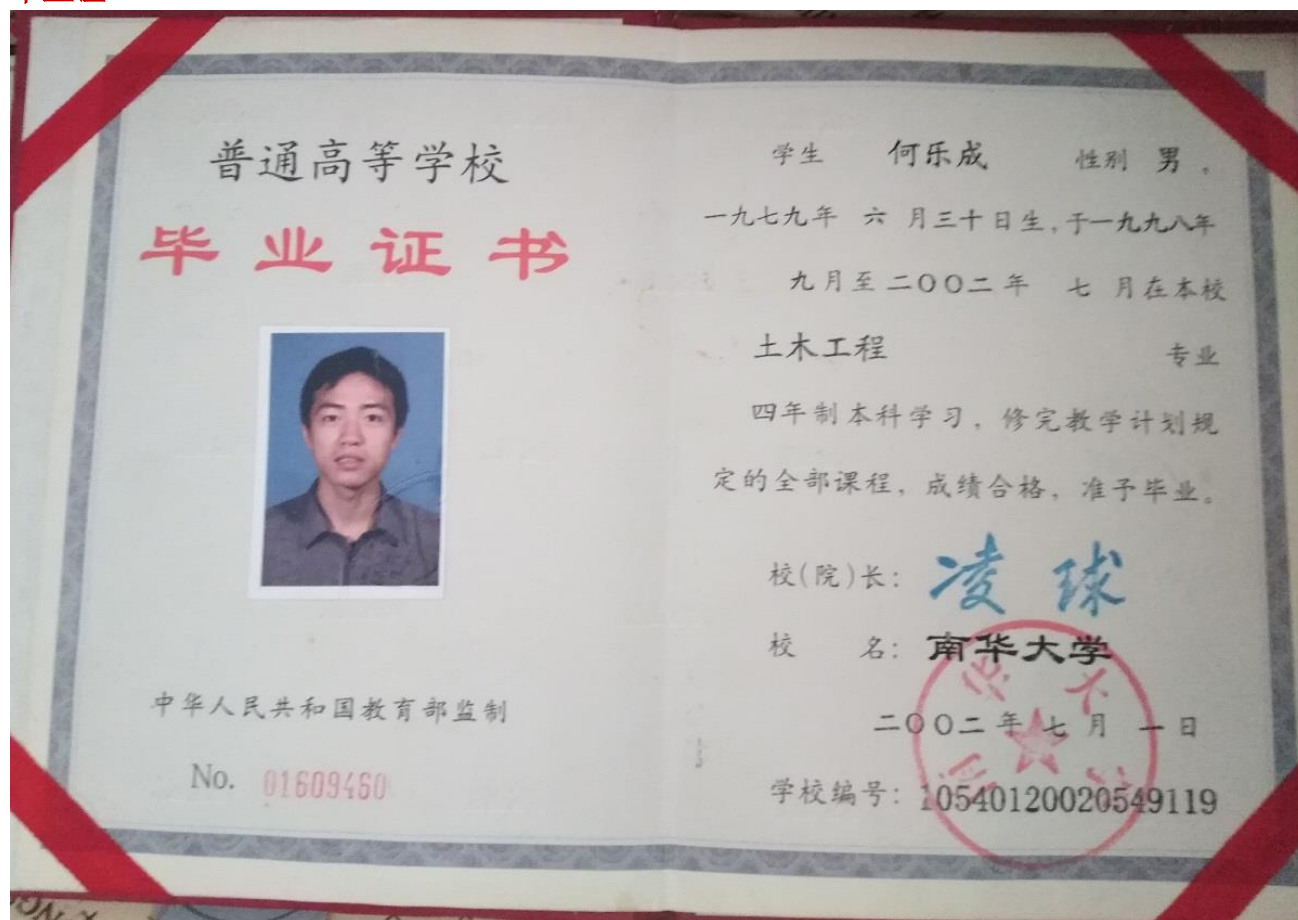 普通高等学校
毕业证书
中华人民共和国教育部监制
No. 01609460
学生 何乐成 性别 男，
一九七九年 六 月三十日生，于一九九八年
九月至二〇〇二年 七 月在本校
土木工程 专业
四年制本科学习，修完教学计划规
定的全部课程，成绩合格，准予毕业。
校(院)长： 凌球
校 名： 南华大学
二〇〇二年七月 一日
学校编号： 10540120020549119